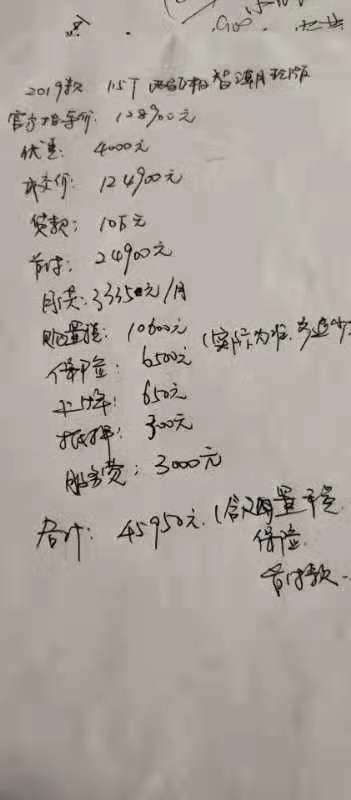 2019款 1.5T 两驱 智 版
官方指导价: 128900元
优惠: 4000元
成交价: 124900元
贷款: 10万元
首付: 24900元
月供: 3335元/月
购置税: 10600元 (实际为准,多退少
保险: 6500元
上牌: 650元
抵押: 300元
服务费: 3000元
合计: 45950元.(含购置税
保险.
首付款.